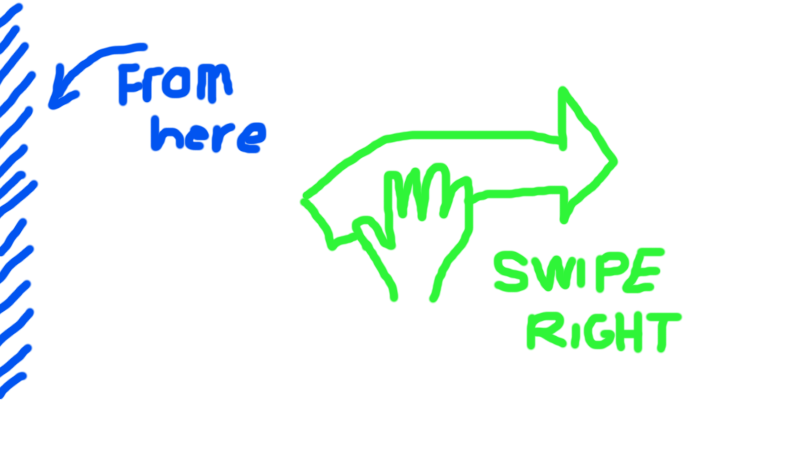 From
here
SWIPE
RIGHT